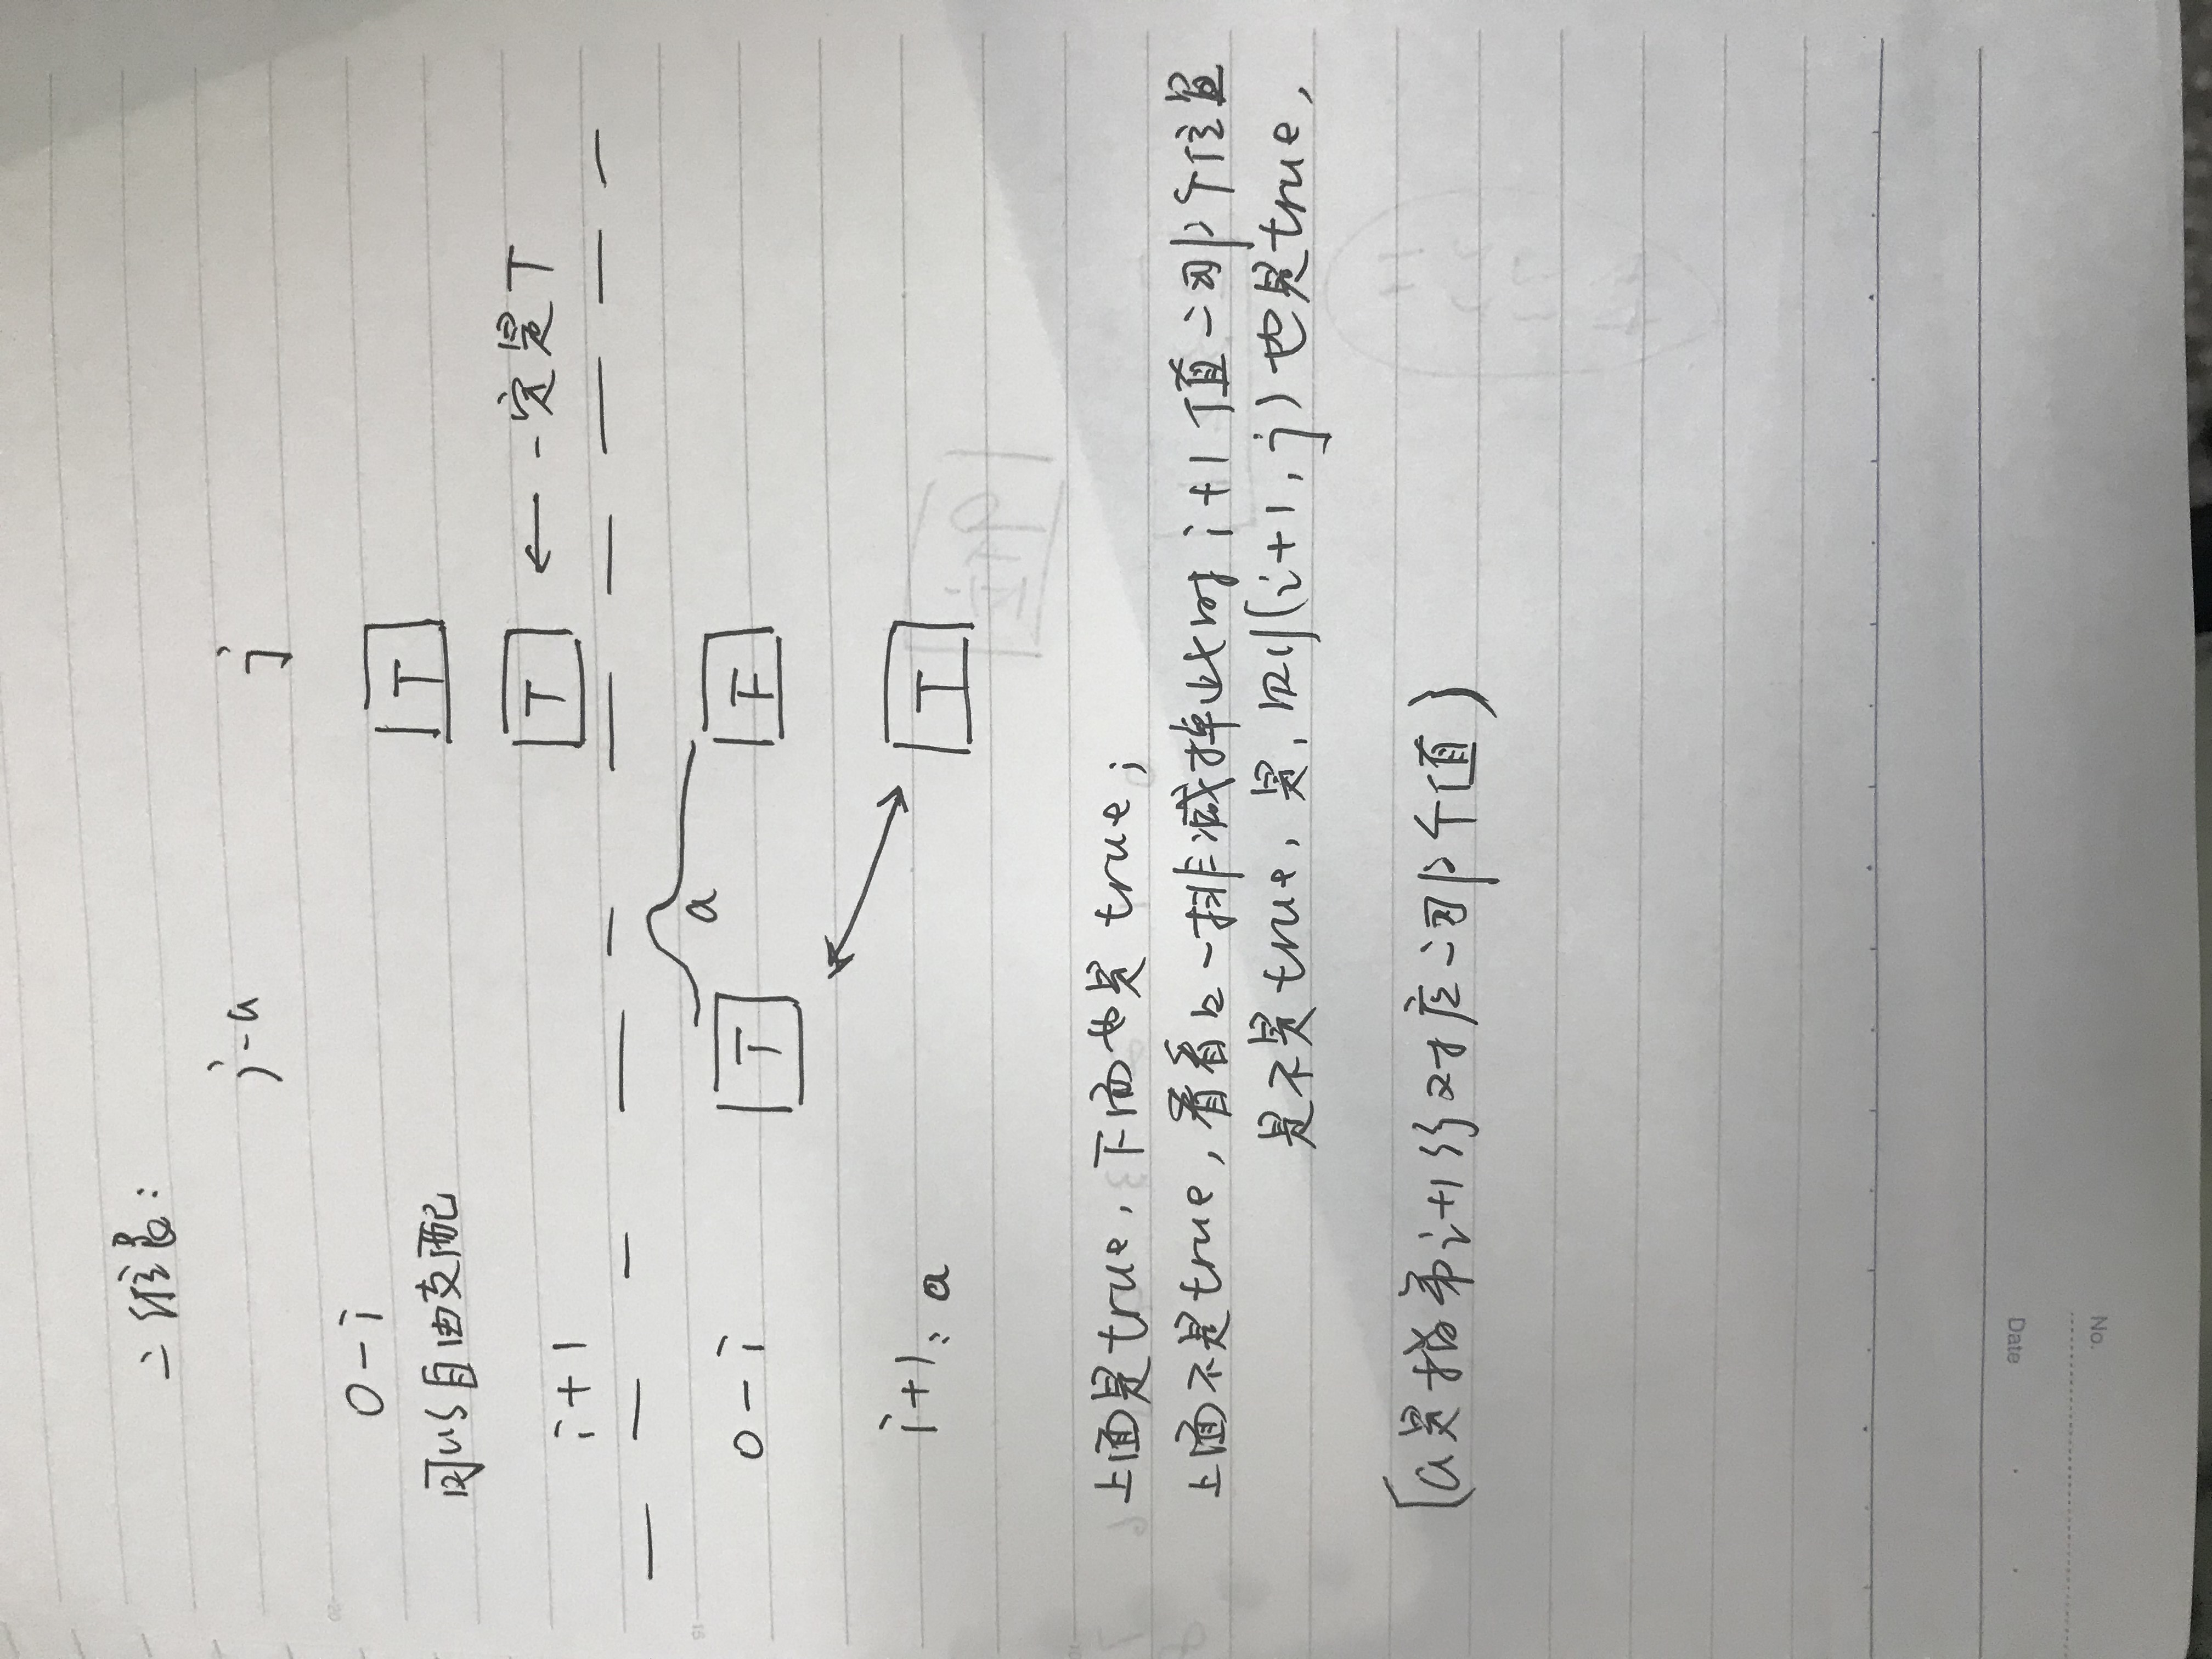 二维是:
j-a j
0-i T
可以自由支配
i+1 T ← 一定是T
a
0-i T F
i+1: a T
上面是true, 下面也是true;
上面不是true, 看看上一排减掉此时i+1值之间那个位置
是不是true, 是, 则(i+1, j)也是true,
(a是指第i+1行对应之间那个值)
Date
No.